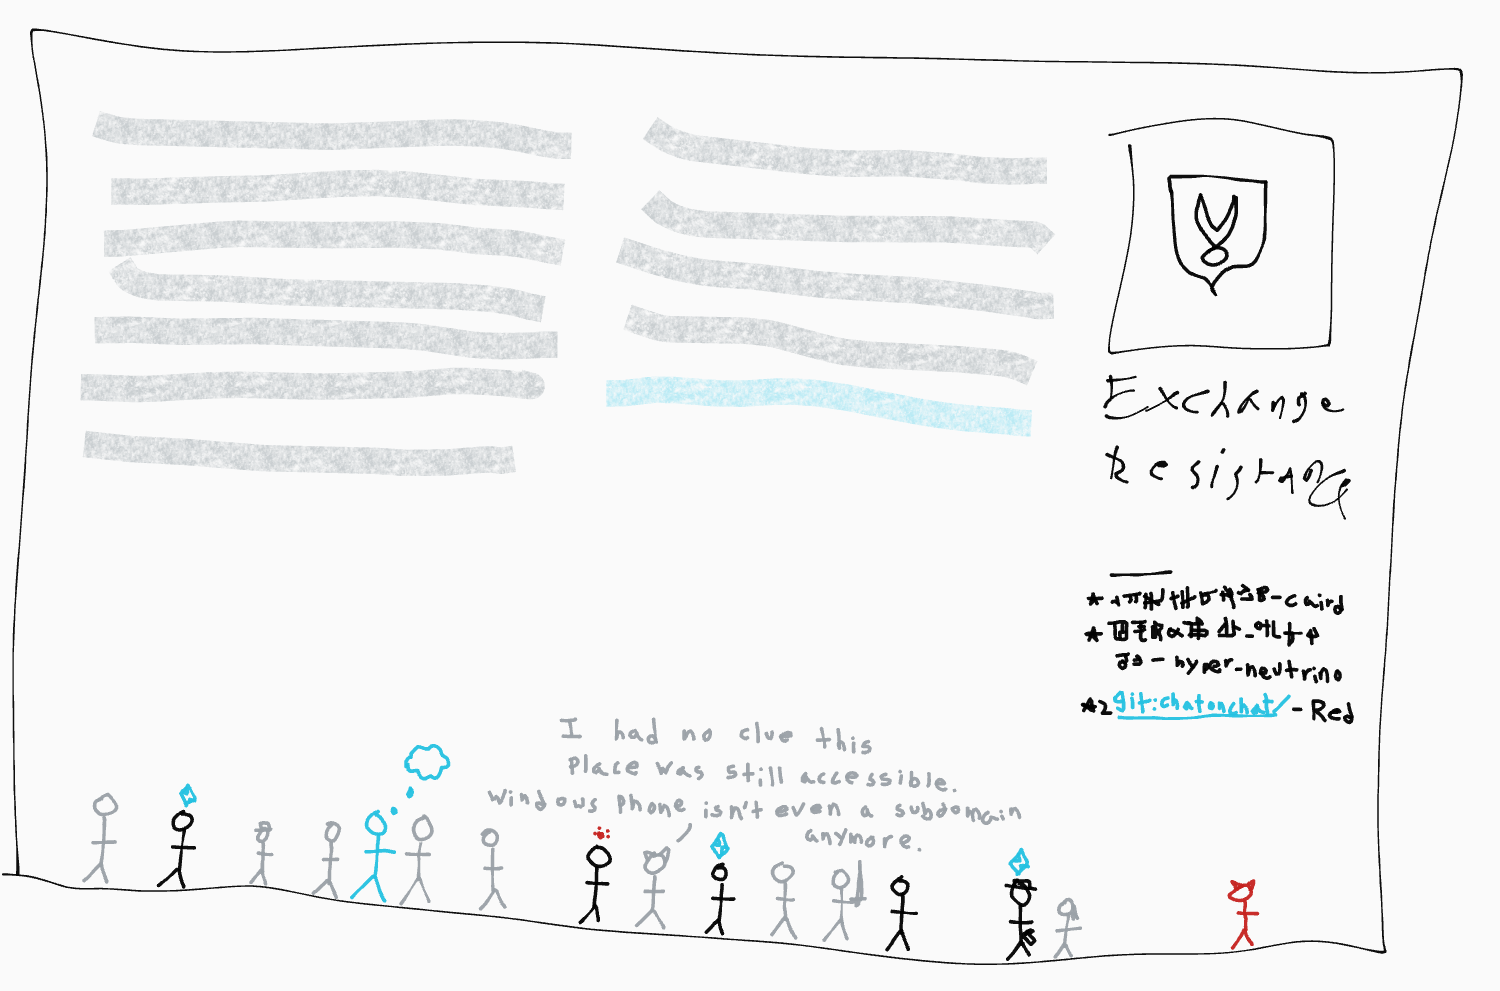 Exchange
Resistance
- caird
- hyper-neutrino
*2 git:chatonchat/ - Red
I had no clue this
place was still accessible.
Windows phone isn't even a subdomain
anymore.